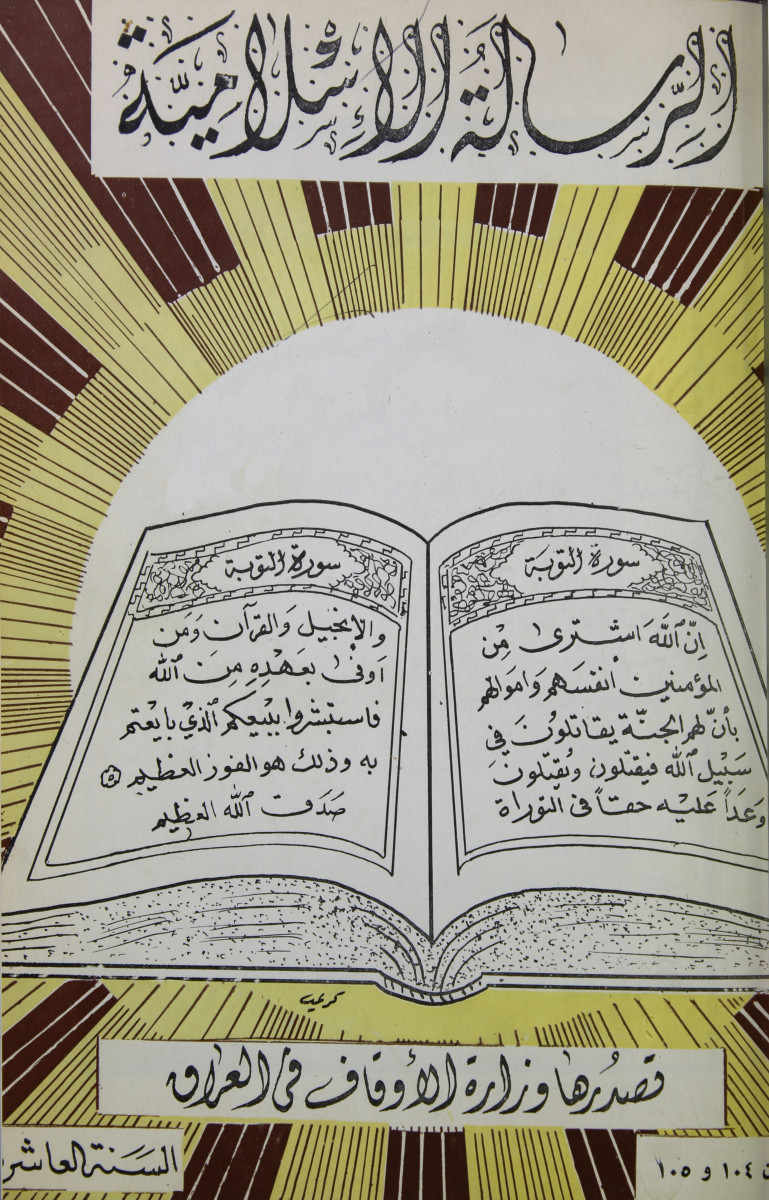 الرِّسالَةُ الإِسْلامِيَّةُ
سورة التوبَة
اِنّ ٱللهَ اشترى مِن
المؤمنين أنفسَهم وَاموالهم
بأنّ لهم الجنّة يقاتلوُنَ في
سَبيْل ٱلله فيقتلون ويُقتلون
وَعَداً عَليْه حقاً فى التوراة
سورة التوبة
والإنجيل وَالقرآن وَمَن
اَوفىٰ بعَهْدِهِ مِنَ ٱلله
فاستبشروا ببيْعكم ٱلذيْ بايعْتم
به وَذلك هو الفوز العظيم
صَدَق ٱلله العظيم
كريم
تصدُرها وزارة الأوقاف فى العراق
١٠٤ و ١٠٥
السَنة العاشر